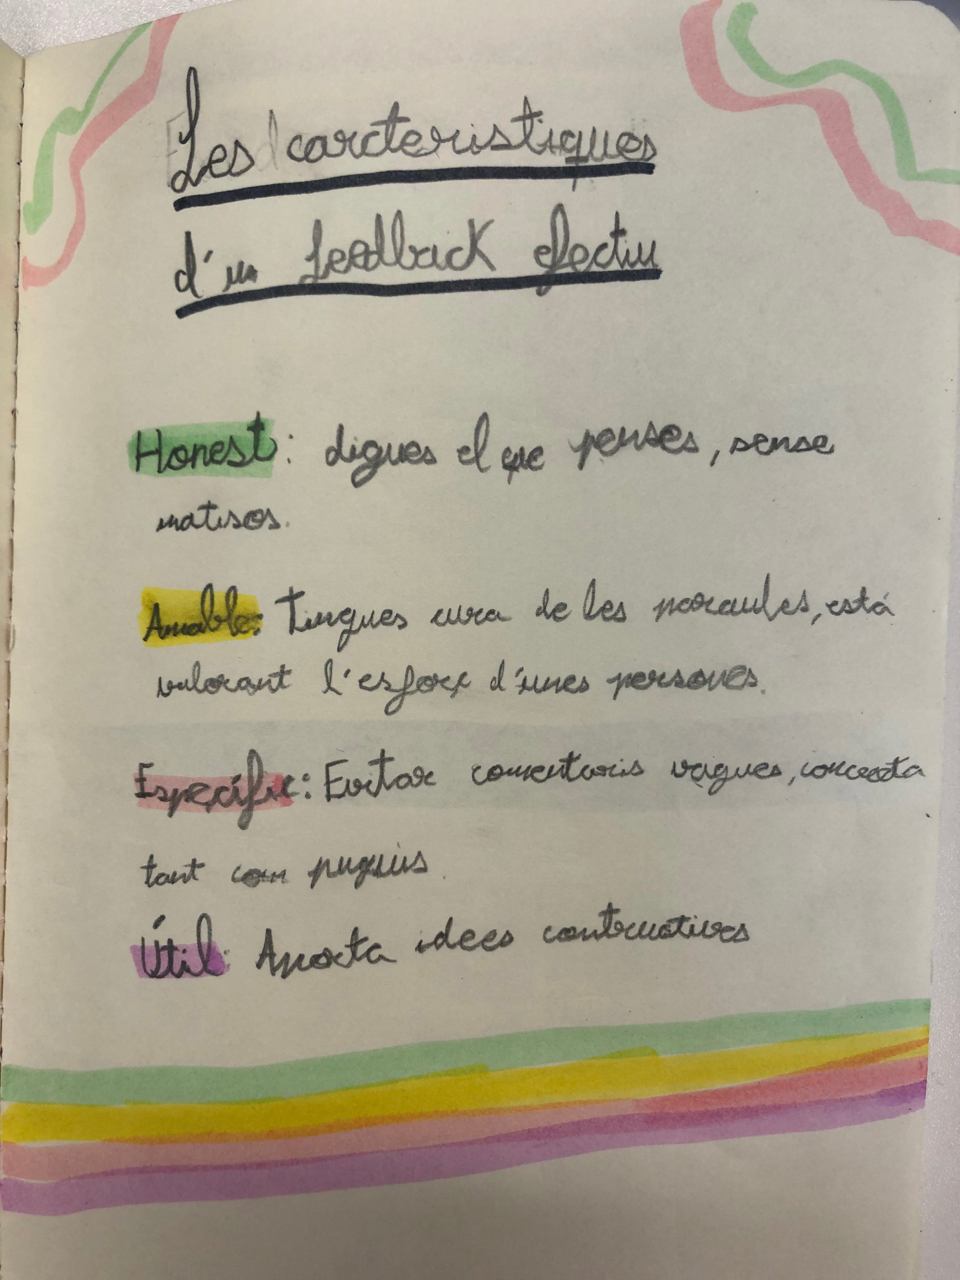 Les carcteristiques
d'un feedback efectiu
Honest: digues el que penses, sense
matisos.
Amable: Tingues cura de les paraules, està
valorant l'esforç d'unes persones.
Específic: Evitar comentaris vagues, concreta
tant com puguis.
Útil: Aporta idees contructives